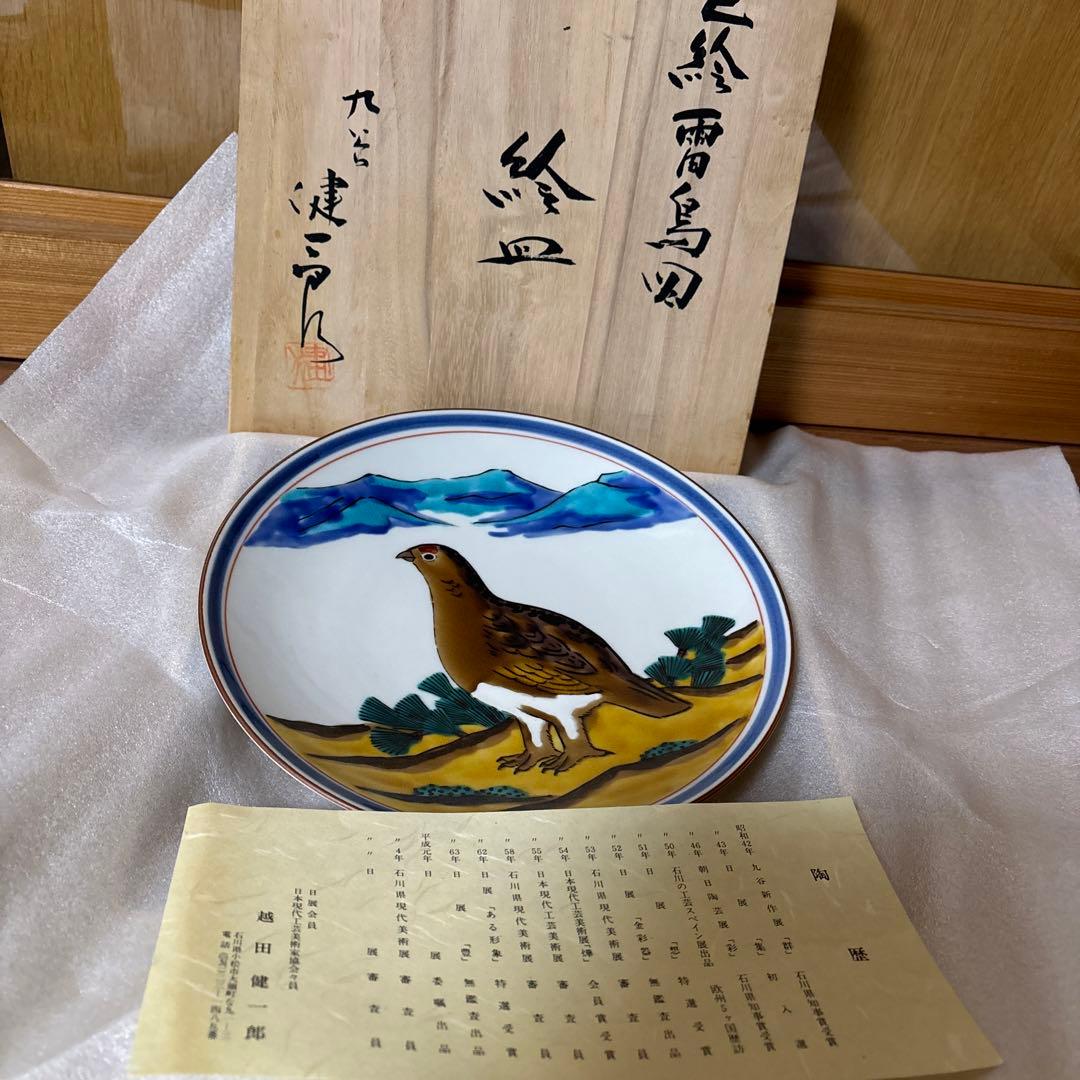 絵雷鳥図
絵皿
九谷
健一郎
陶歴
昭和42年 九谷新作展「群」 石川県知事賞受賞
〃43年 日展「集」 初入選
〃46年 朝日陶芸展「彩」 石川県知事賞受賞
〃50年 石川の工芸スペイン展出品 欧州5ヶ国歴訪
〃51年 日展「想」 特選受賞
〃52年 日展「金彩器」 無鑑査出品
〃53年 石川県現代美術展 審査員
〃54年 日本現代工芸美術展「燁」 会員賞受賞
〃55年 日本現代工芸美術展 審査員
〃58年 石川県現代美術展 審査員
〃62年 日展「ある形象」 特選受賞
〃63年 日展「豊」 無鑑査出品
平成元年 日展 委嘱出品
〃4年 石川県現代美術展 審査員
〃〃 日展 審査員
日展会員
日本現代工芸美術家協会々員
越田健一郎
石川県小松市